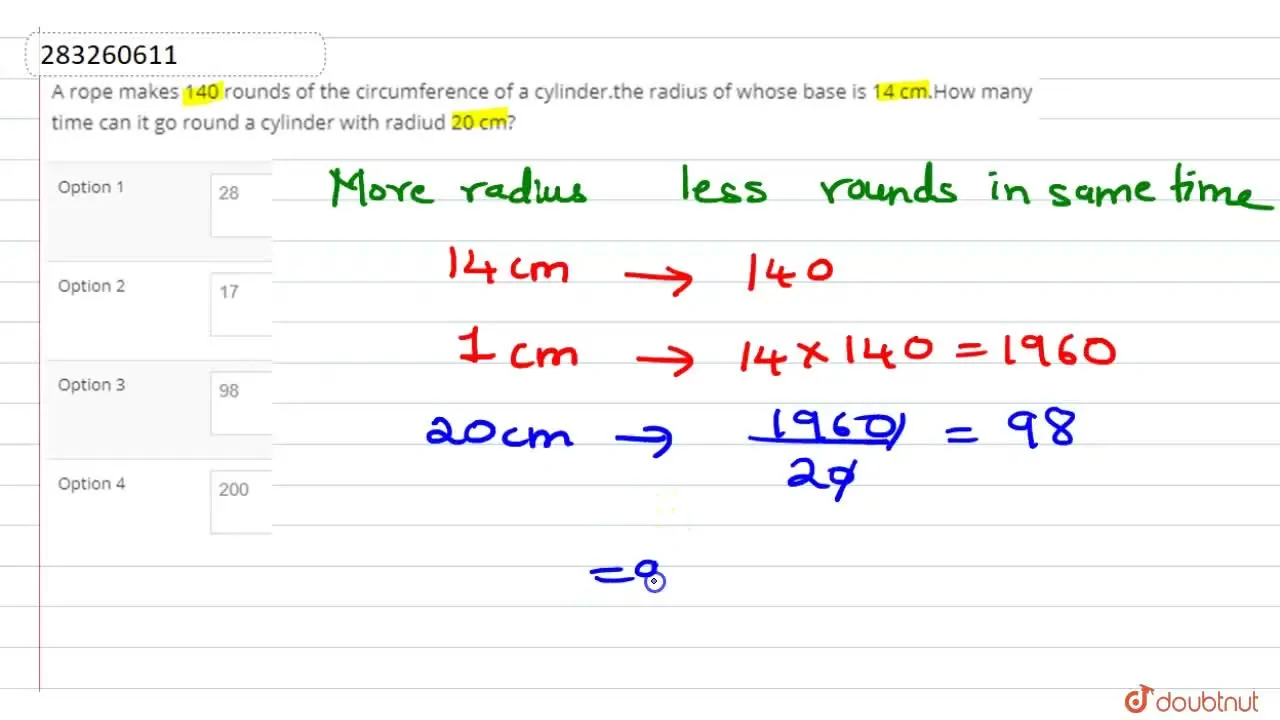 283260611
A rope makes 140 rounds of the circumference of a cylinder.the radius of whose base is 14 cm.How many
time can it go round a cylinder with radiud 20 cm?
Option 1 28
Option 2 17
Option 3 98
Option 4 200
More radius less rounds in same time
14 cm → 140
1 cm → 14 × 140 = 1960
20 cm → 1960/20 = 98
= 9
doubtnut